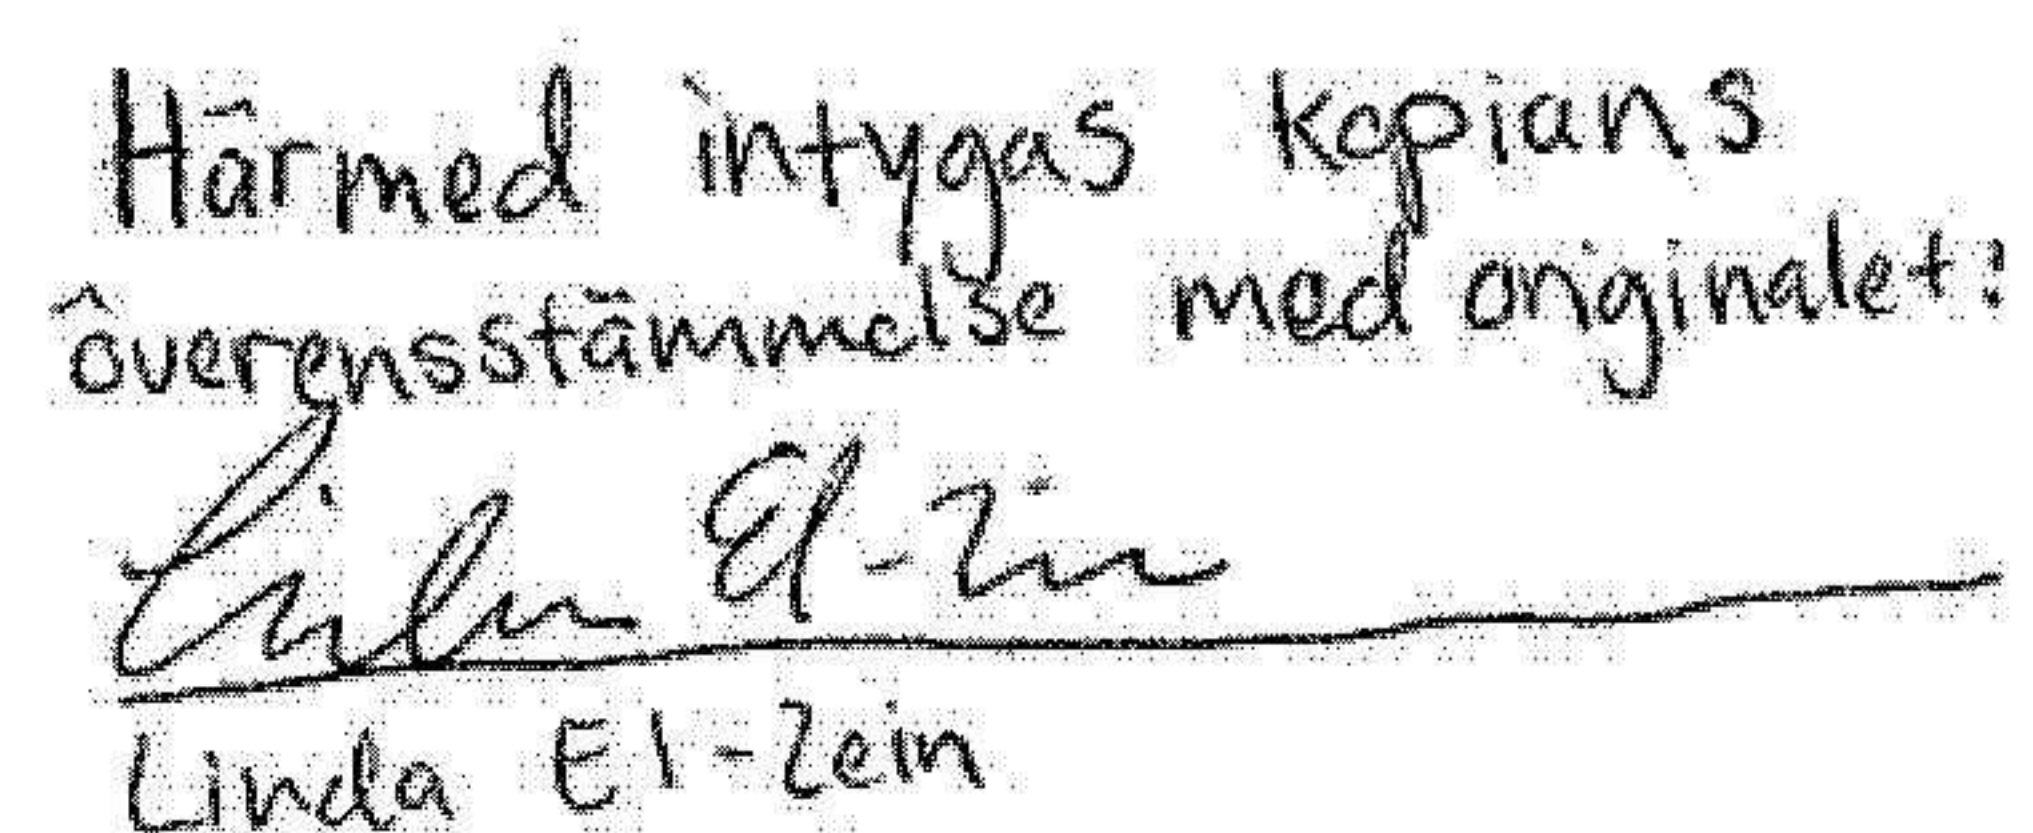 Härmed intygas kopians
överensstämmelse med originalet:
Linda El-Zein
Linda El-Zein